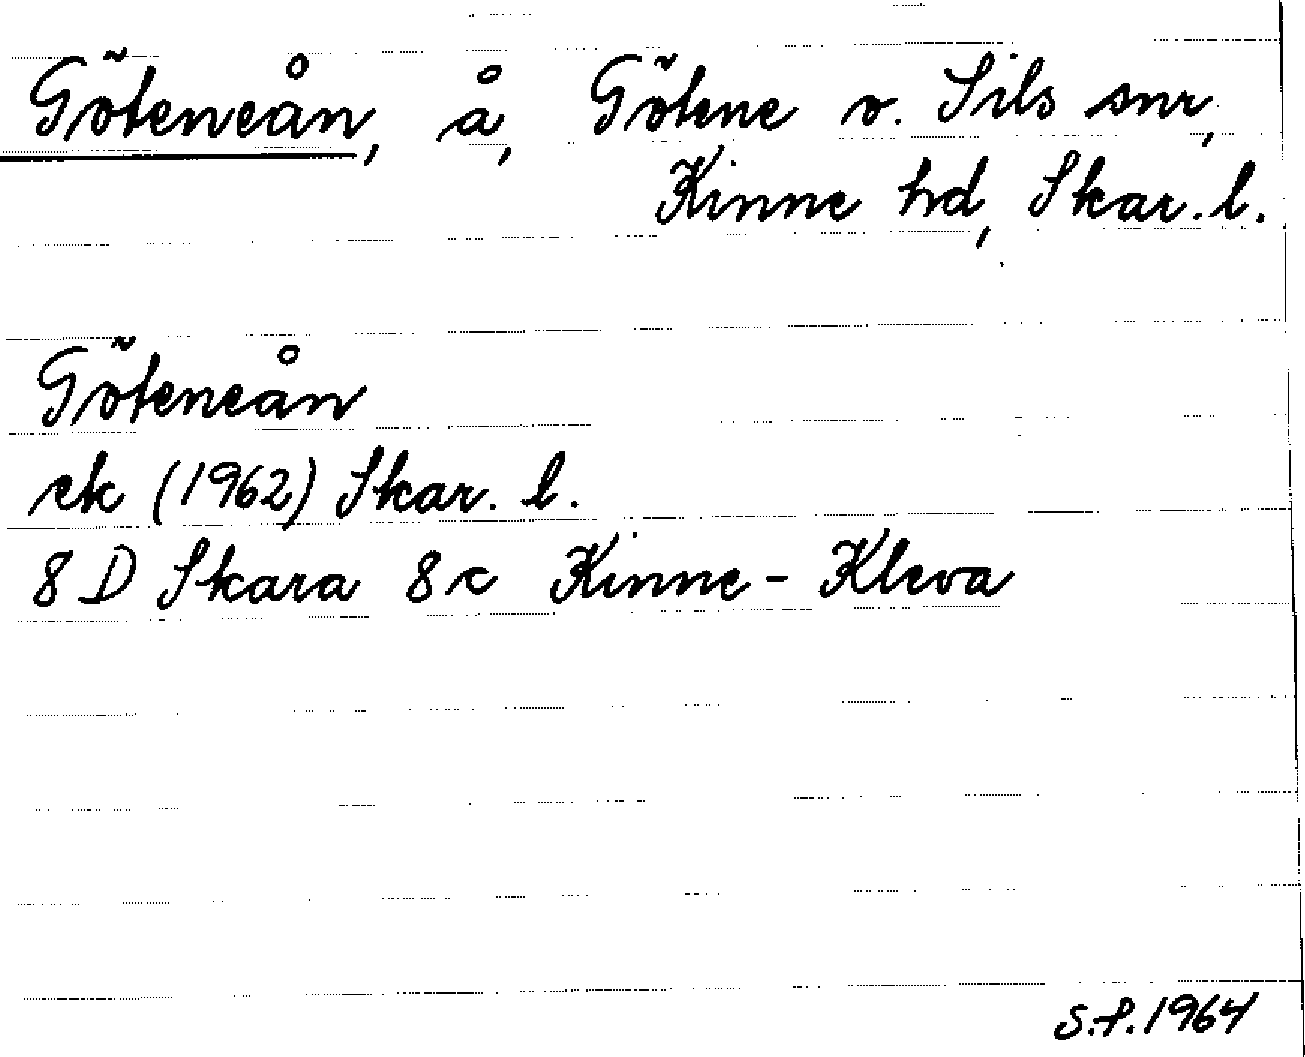 Göteneån, å, Götene o. Sils snr,
Kinne hd, Skar. l.
Göteneån
ek (1962) Skar. l.
8 D Skara 8 c Kinne - Kleva
S.F. 1964